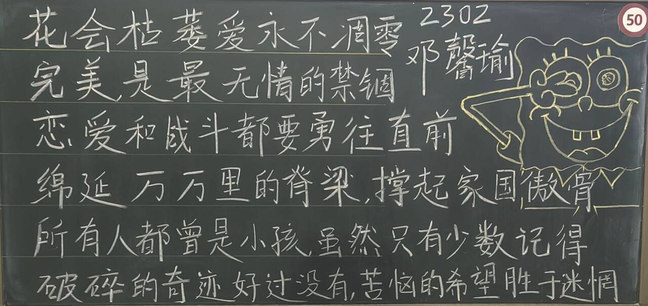 花会枯萎爱永不凋零
2302
邓馨瑜
50
完美是最无情的禁锢
恋爱和战斗都要勇往直前
绵延万万里的脊梁,撑起家国傲骨
所有人都曾是小孩,虽然只有少数记得
破碎的奇迹好过没有,苦恼的希望胜于迷惘